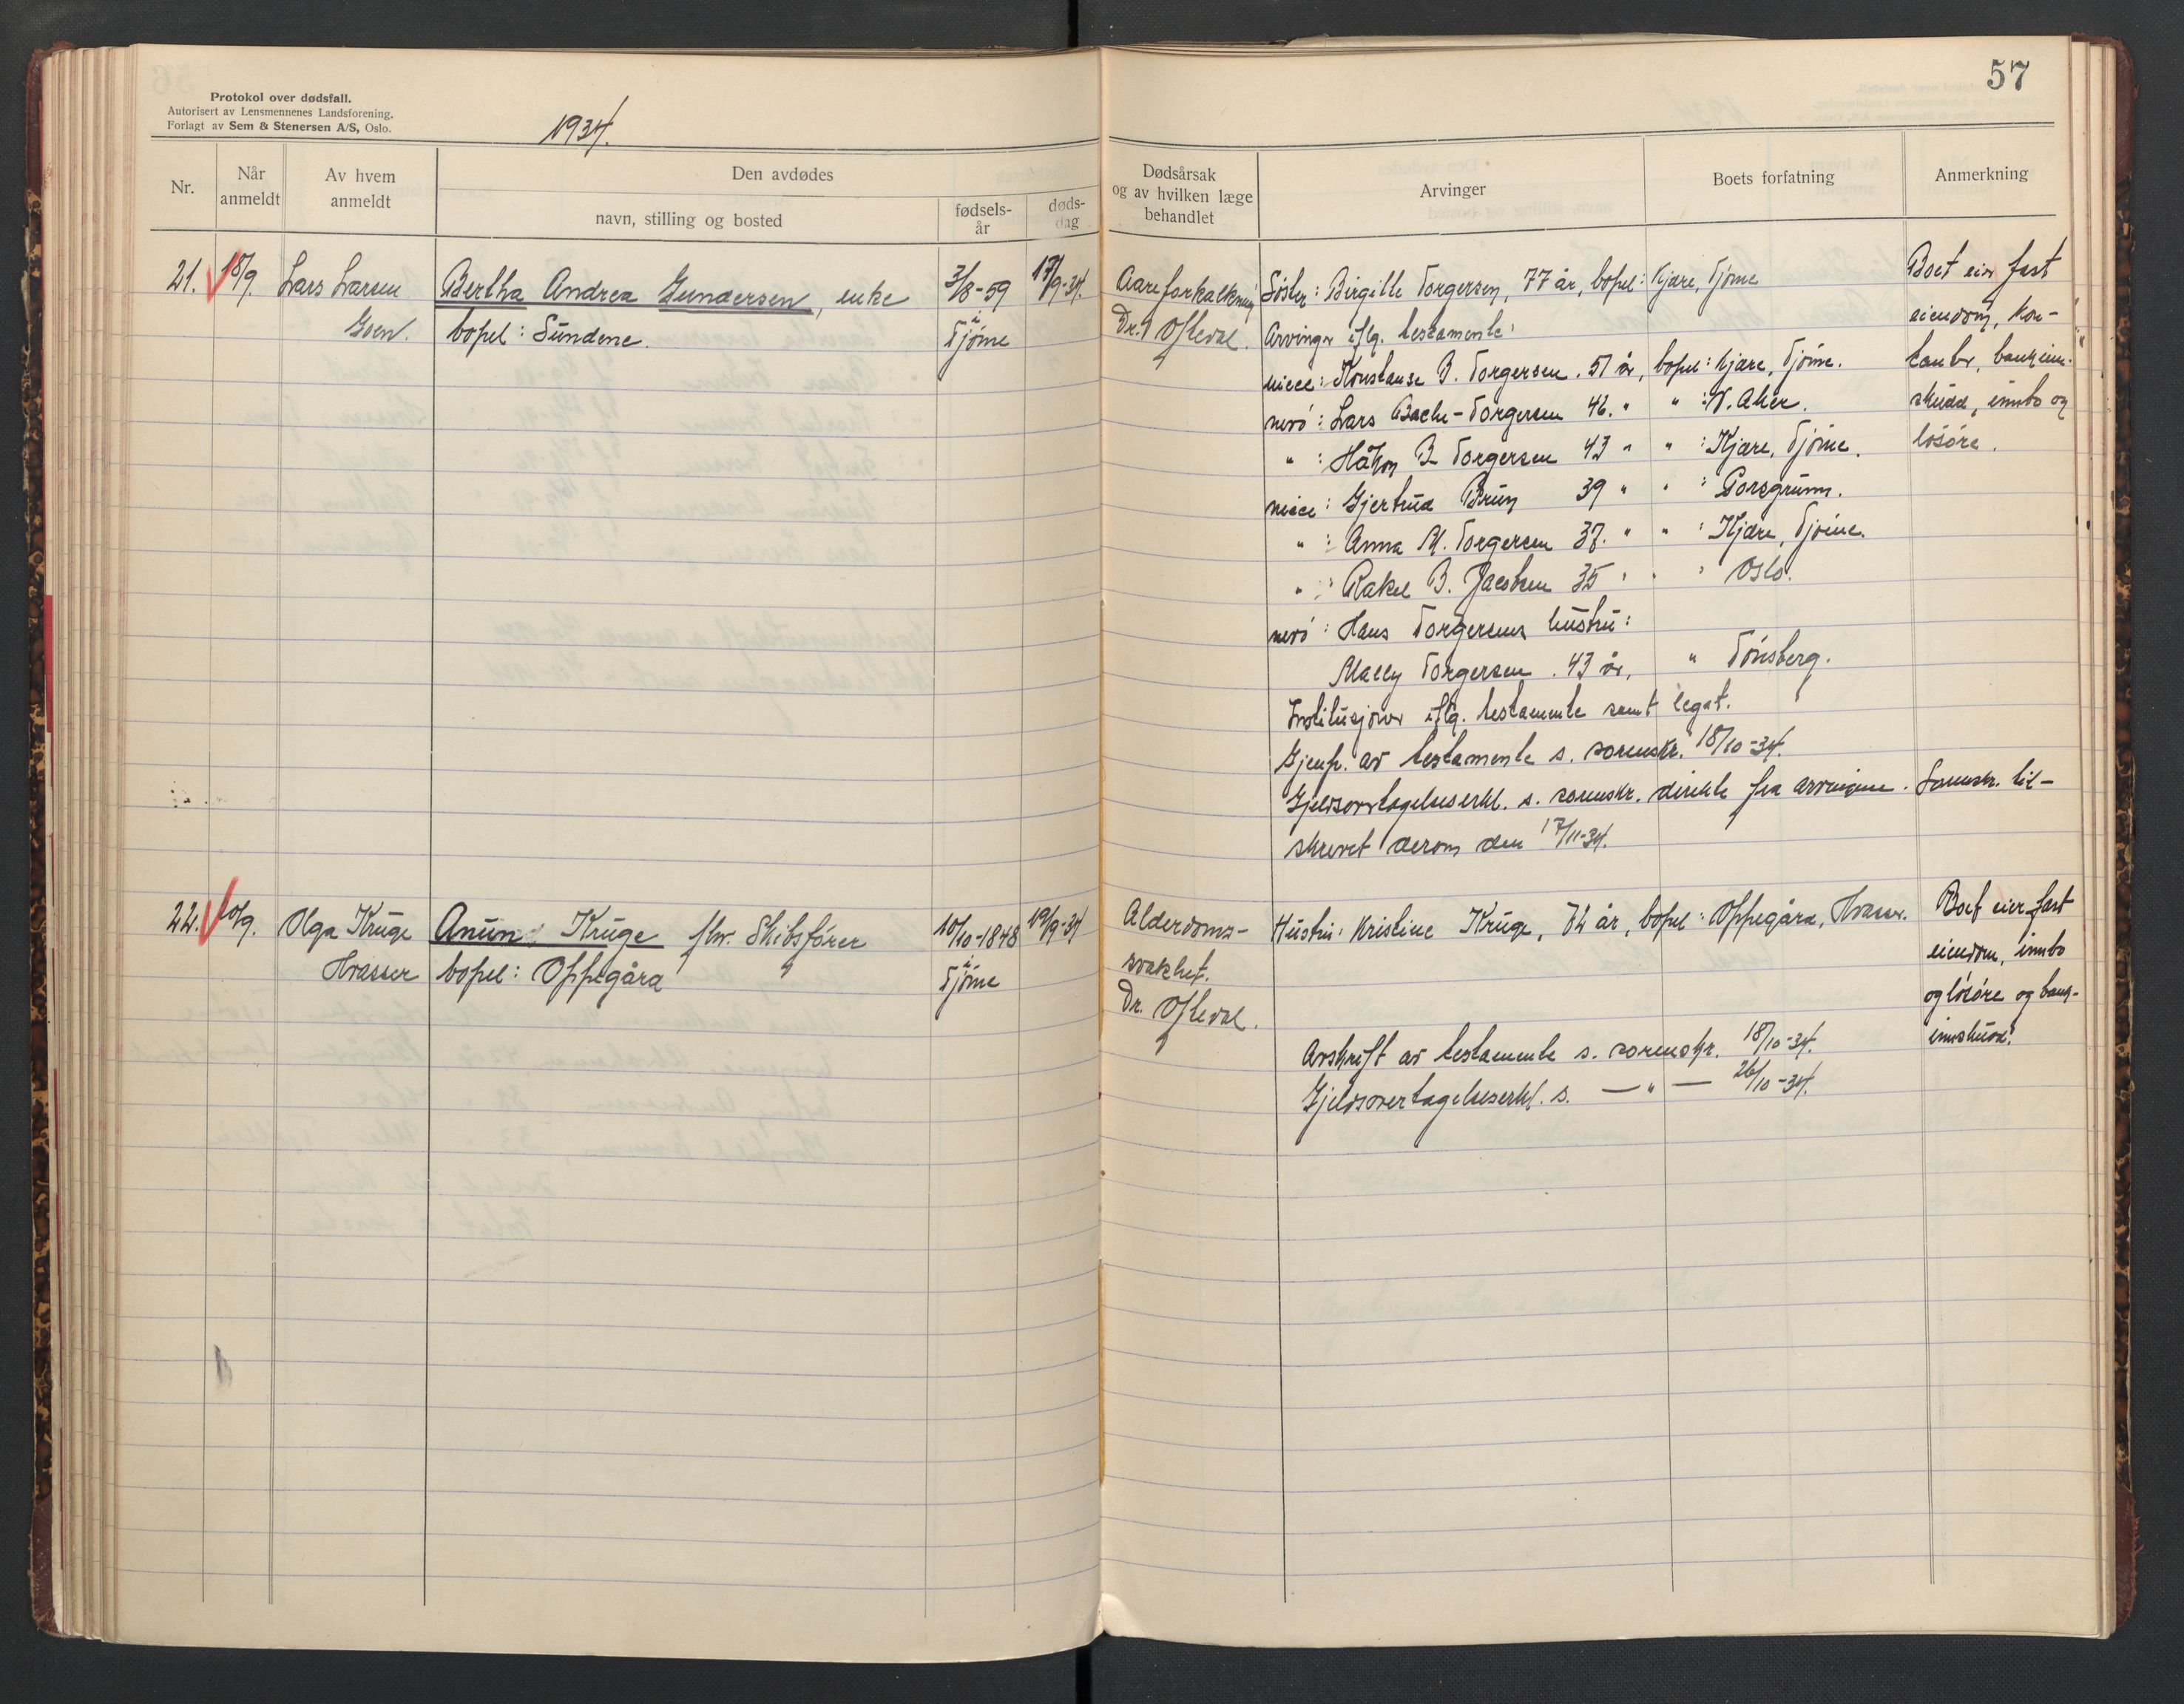 57
Protokol over dødsfall.
Autorisert av Lensmennenes Landsforening.
Forlagt av Sem & Stenersen A/S, Oslo.
1934.
Nr.
Når anmeldt
Av hvem anmeldt
Den avdødes
navn, stilling og bosted
fødsels-år
døds-dag
Dødsårsak og av hvilken læge behandlet
Arvinger
Boets forfatning
Anmerkning
21. 18/9. Lars Larsen Bertha Andrea Gundersen, enke 3/8-59 17/9-34.
bopel: Sundene. i Tjøme
Aareforkalkning
Dr. Ofteval.
Søster: Birgitte Torgersen, 77 år, bopel: Kjære, Tjøme
Arvinger iflg. testamente:
niece: Konstanse B. Torgersen. 51 år, bopel: Kjære, Tjøme.
nevø: Lars Bache-Torgersen 46. " " : V. Aker.
" : Håkon B Torgersen 43 " " : Kjære, Tjøme.
niece: Gjertrud Bruun 39 " " : Porsgrunn.
" : Anna M. Torgersen 37. " " : Kjære, Tjøme.
" : Rakel B. Jacobsen 35 " " " Oslo.
nevø: Hans Torgersens hustru:
Mally Torgersen. 43 år, " Tønsberg.
Institusjoner iflg. testamente samt legat.
Gjenp. av testamente s. sorenskr. 18/10-34.
Gjeldsovertagelseserkl. s. sorenskr. direkte fra arvingene. Sorenskr. til-
skrevet derom den 17/11-34.
Boet eier fast
eiendom, kon-
tanter, bankinn-
skudd, innbo og
løsøre.
22. Olga Kruge Anun Kruge fhv. Skibsfører 10/10-1848 19/9-34
Hvasser bopel: Oppegård i Tjøme
Alderdoms-
svakhet.
Dr. Ofteval.
Hustru: Kristine Kruge, 72 år, bopel: Oppegård, Hvasser.
Avskrift av testamente s. sorenskr. 18/10-34.
Gjeldsovertagelseserkl. s. — " — 26/10-34.
Boet eier fast
eiendom, innbo
og løsøre og bank-
innskudd.